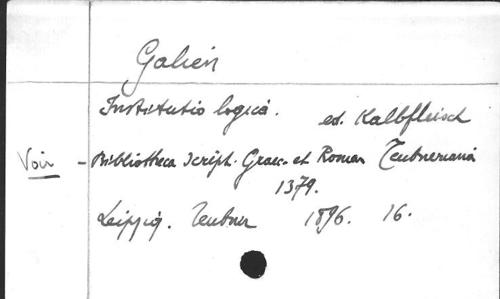 Galien
Institutio logica. ed. Kalbfleisch
Voir - Bibliotheca Script. Graec. et Roman Teubneriana
1379.
Leipzig. Teubner 1896. 16.